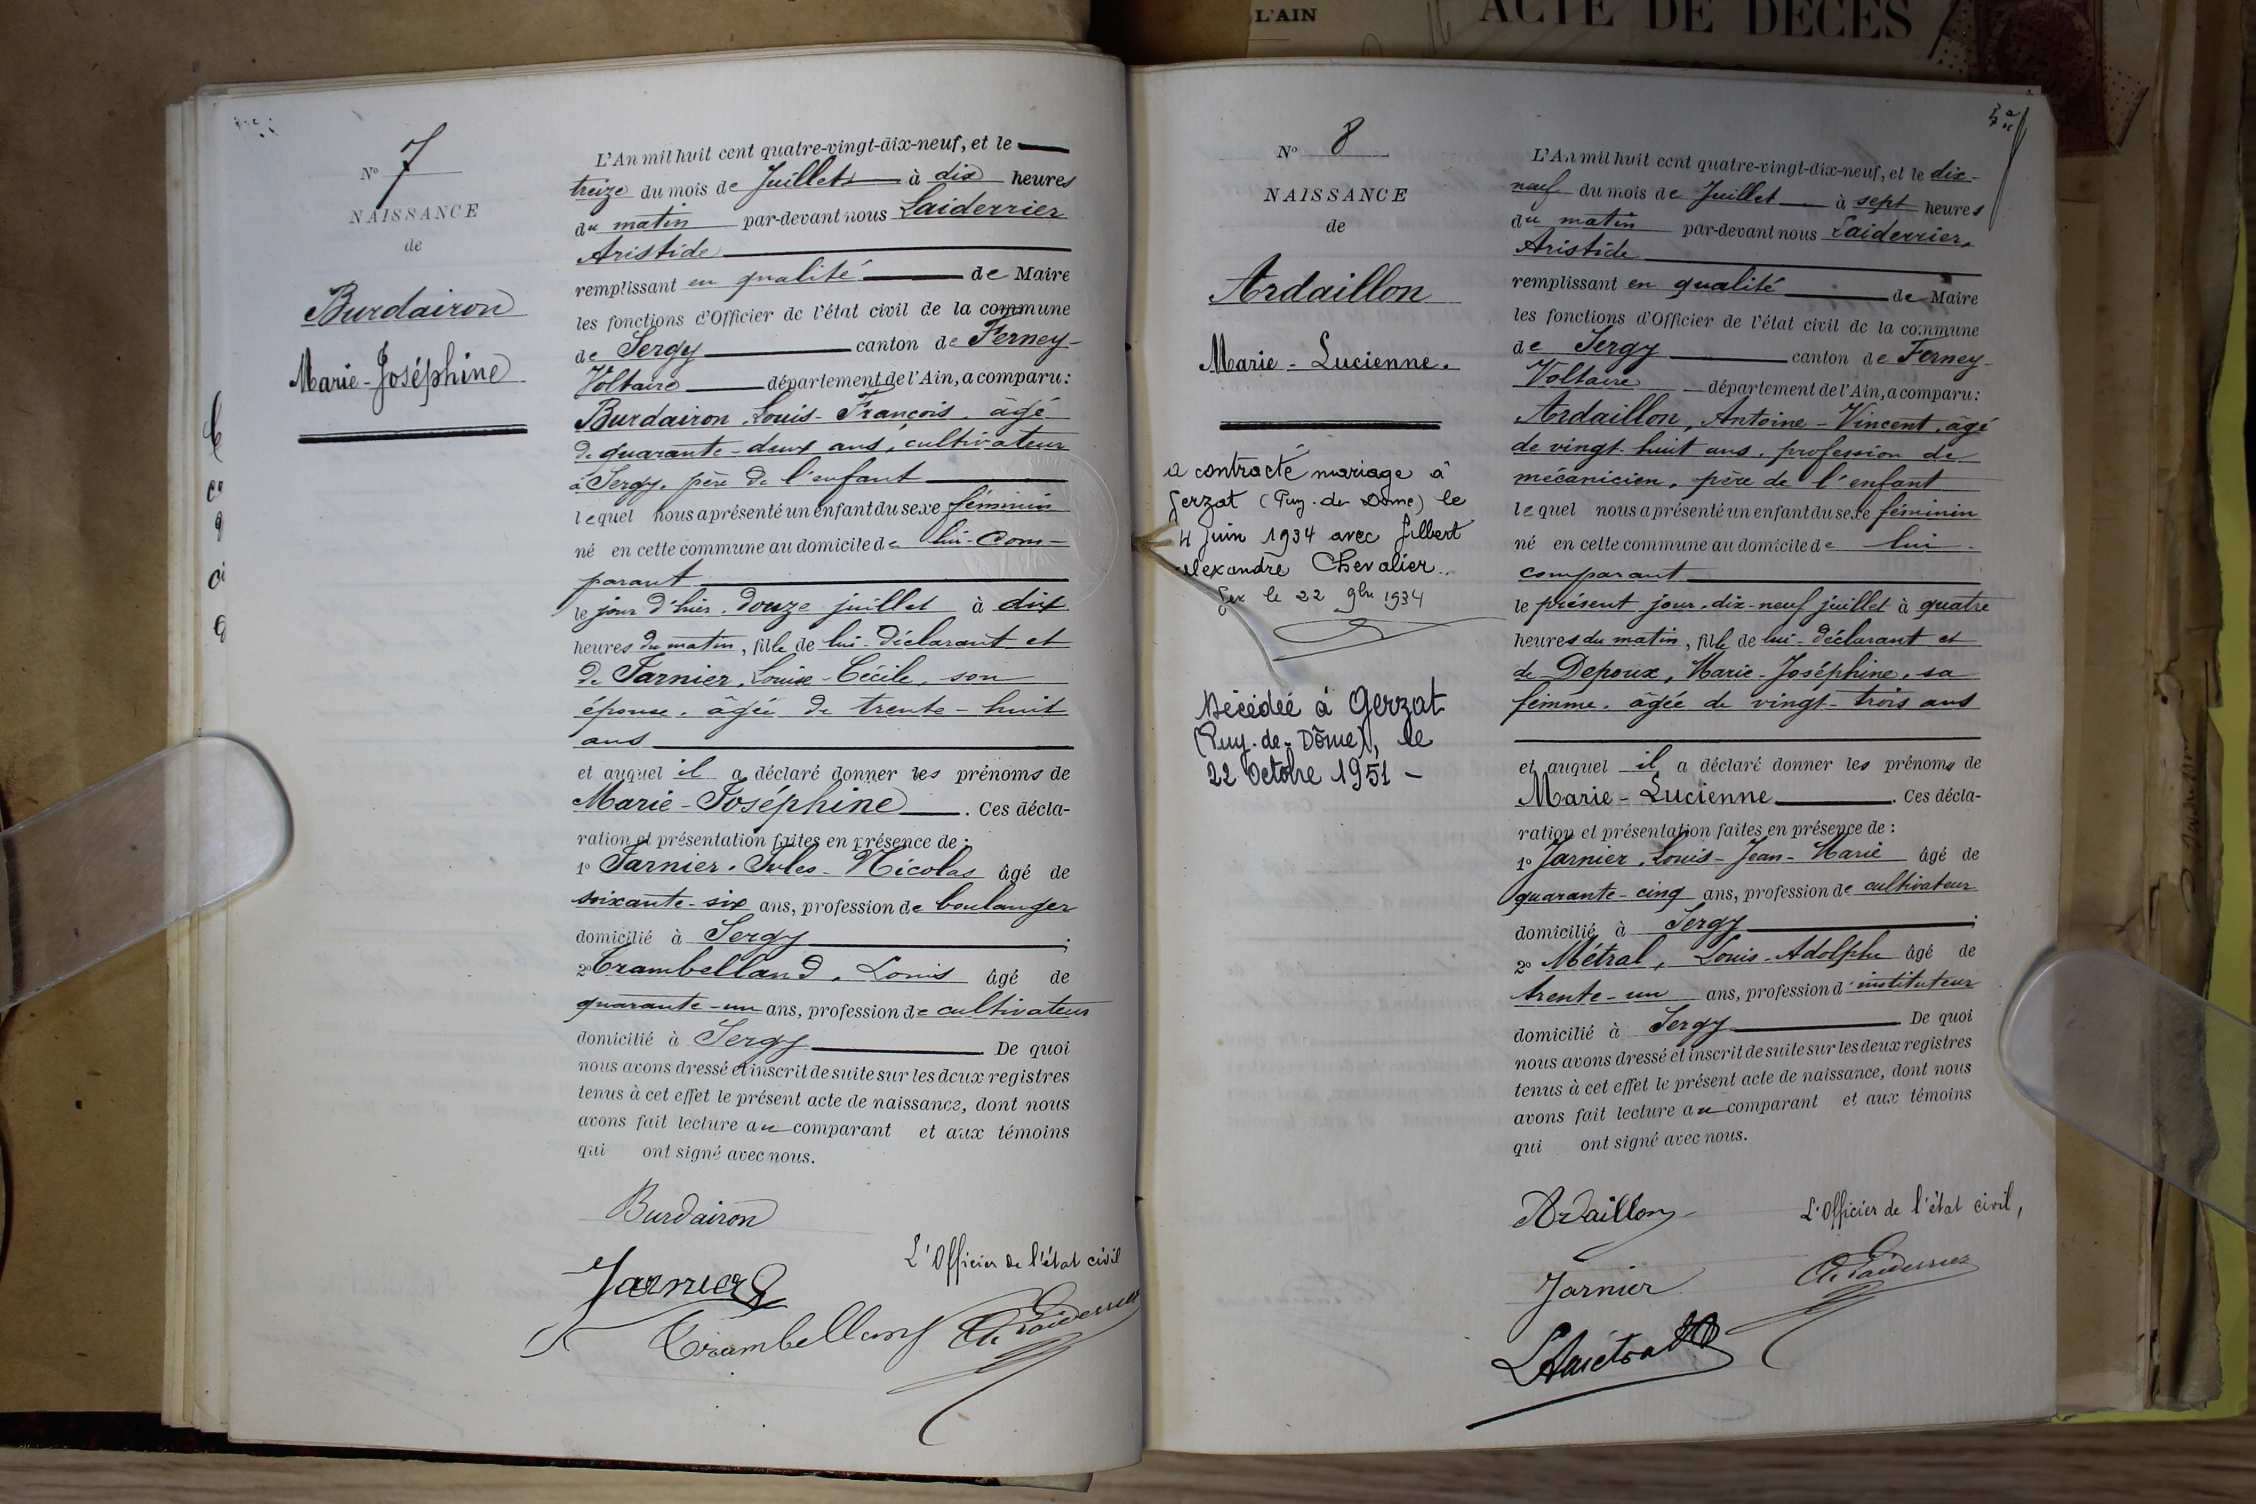 L'AIN
ACTE DE DÉCÈS
N° 7
NAISSANCE
de
Burdairon
Marie-Joséphine
L'An mil huit cent quatre-vingt-dix-neuf, et le
treize du mois de Juillet à dix heures
du matin par-devant nous Laiderrier
Aristide
remplissant en qualité de Maire
les fonctions d'Officier de l'état civil de la commune
de Sergy canton de Ferney-
Voltaire département de l'Ain, a comparu :
Burdairon, Louis-François, âgé
de quarante-deux ans, cultivateur
à Sergy, père de l'enfant
lequel nous a présenté un enfant du sexe féminin
né en cette commune au domicile de lui-com-
parant
le jour d'hier, douze juillet à dix
heures du matin, fille de lui-déclarant et
de Jarnier, Louise-Cécile, son
épouse, âgée de trente-huit
ans
et auquel il a déclaré donner les prénoms de
Marie-Joséphine. Ces décla-
ration et présentation faites en présence de :
1° Jarnier, Jules-Nicolas âgé de
soixante-six ans, profession de boulanger
domicilié à Sergy ;
2° Trambelland, Louis âgé de
quarante-un ans, profession de cultivateur
domicilié à Sergy De quoi
nous avons dressé et inscrit de suite sur les deux registres
tenus à cet effet le présent acte de naissance, dont nous
avons fait lecture au comparant et aux témoins
qui ont signé avec nous.
Burdairon
L'Officier de l'état civil
Jarnier
Trambelland
Ar Laiderrier
N° 8
NAISSANCE
de
Ardaillon
Marie-Lucienne.
a contracté mariage à
Gerzat (Puy-de-Dôme) le
4 juin 1934 avec Gilbert
Alexandre Chevalier.
Gex le 22 9bre 1934
Décédée à Gerzat
(Puy-de-Dôme), le
22 Octobre 1951 -
L'An mil huit cent quatre-vingt-dix-neuf, et le dix-
neuf du mois de Juillet à sept heures
du matin par-devant nous Laiderrier,
Aristide
remplissant en qualité de Maire
les fonctions d'Officier de l'état civil de la commune
de Sergy canton de Ferney-
Voltaire département de l'Ain, a comparu :
Ardaillon, Antoine-Vincent, âgé
de vingt-huit ans, profession de
mécanicien, père de l'enfant
lequel nous a présenté un enfant du sexe féminin
né en cette commune au domicile de lui-
comparant
le présent jour, dix-neuf juillet à quatre
heures du matin, fille de lui-déclarant et
de Depoux, Marie-Joséphine, sa
femme, âgée de vingt-trois ans
et auquel il a déclaré donner les prénoms de
Marie-Lucienne. Ces décla-
ration et présentation faites en présence de :
1° Jarnier, Louis-Jean-Marie âgé de
quarante-cinq ans, profession de cultivateur
domicilié à Sergy ;
2° Métral, Louis-Adolphe âgé de
trente-un ans, profession d'instituteur
domicilié à Sergy De quoi
nous avons dressé et inscrit de suite sur les deux registres
tenus à cet effet le présent acte de naissance, dont nous
avons fait lecture au comparant et aux témoins
qui ont signé avec nous.
Ardaillon
L'Officier de l'état civil,
Ar Laiderrier
Jarnier
LAMétral